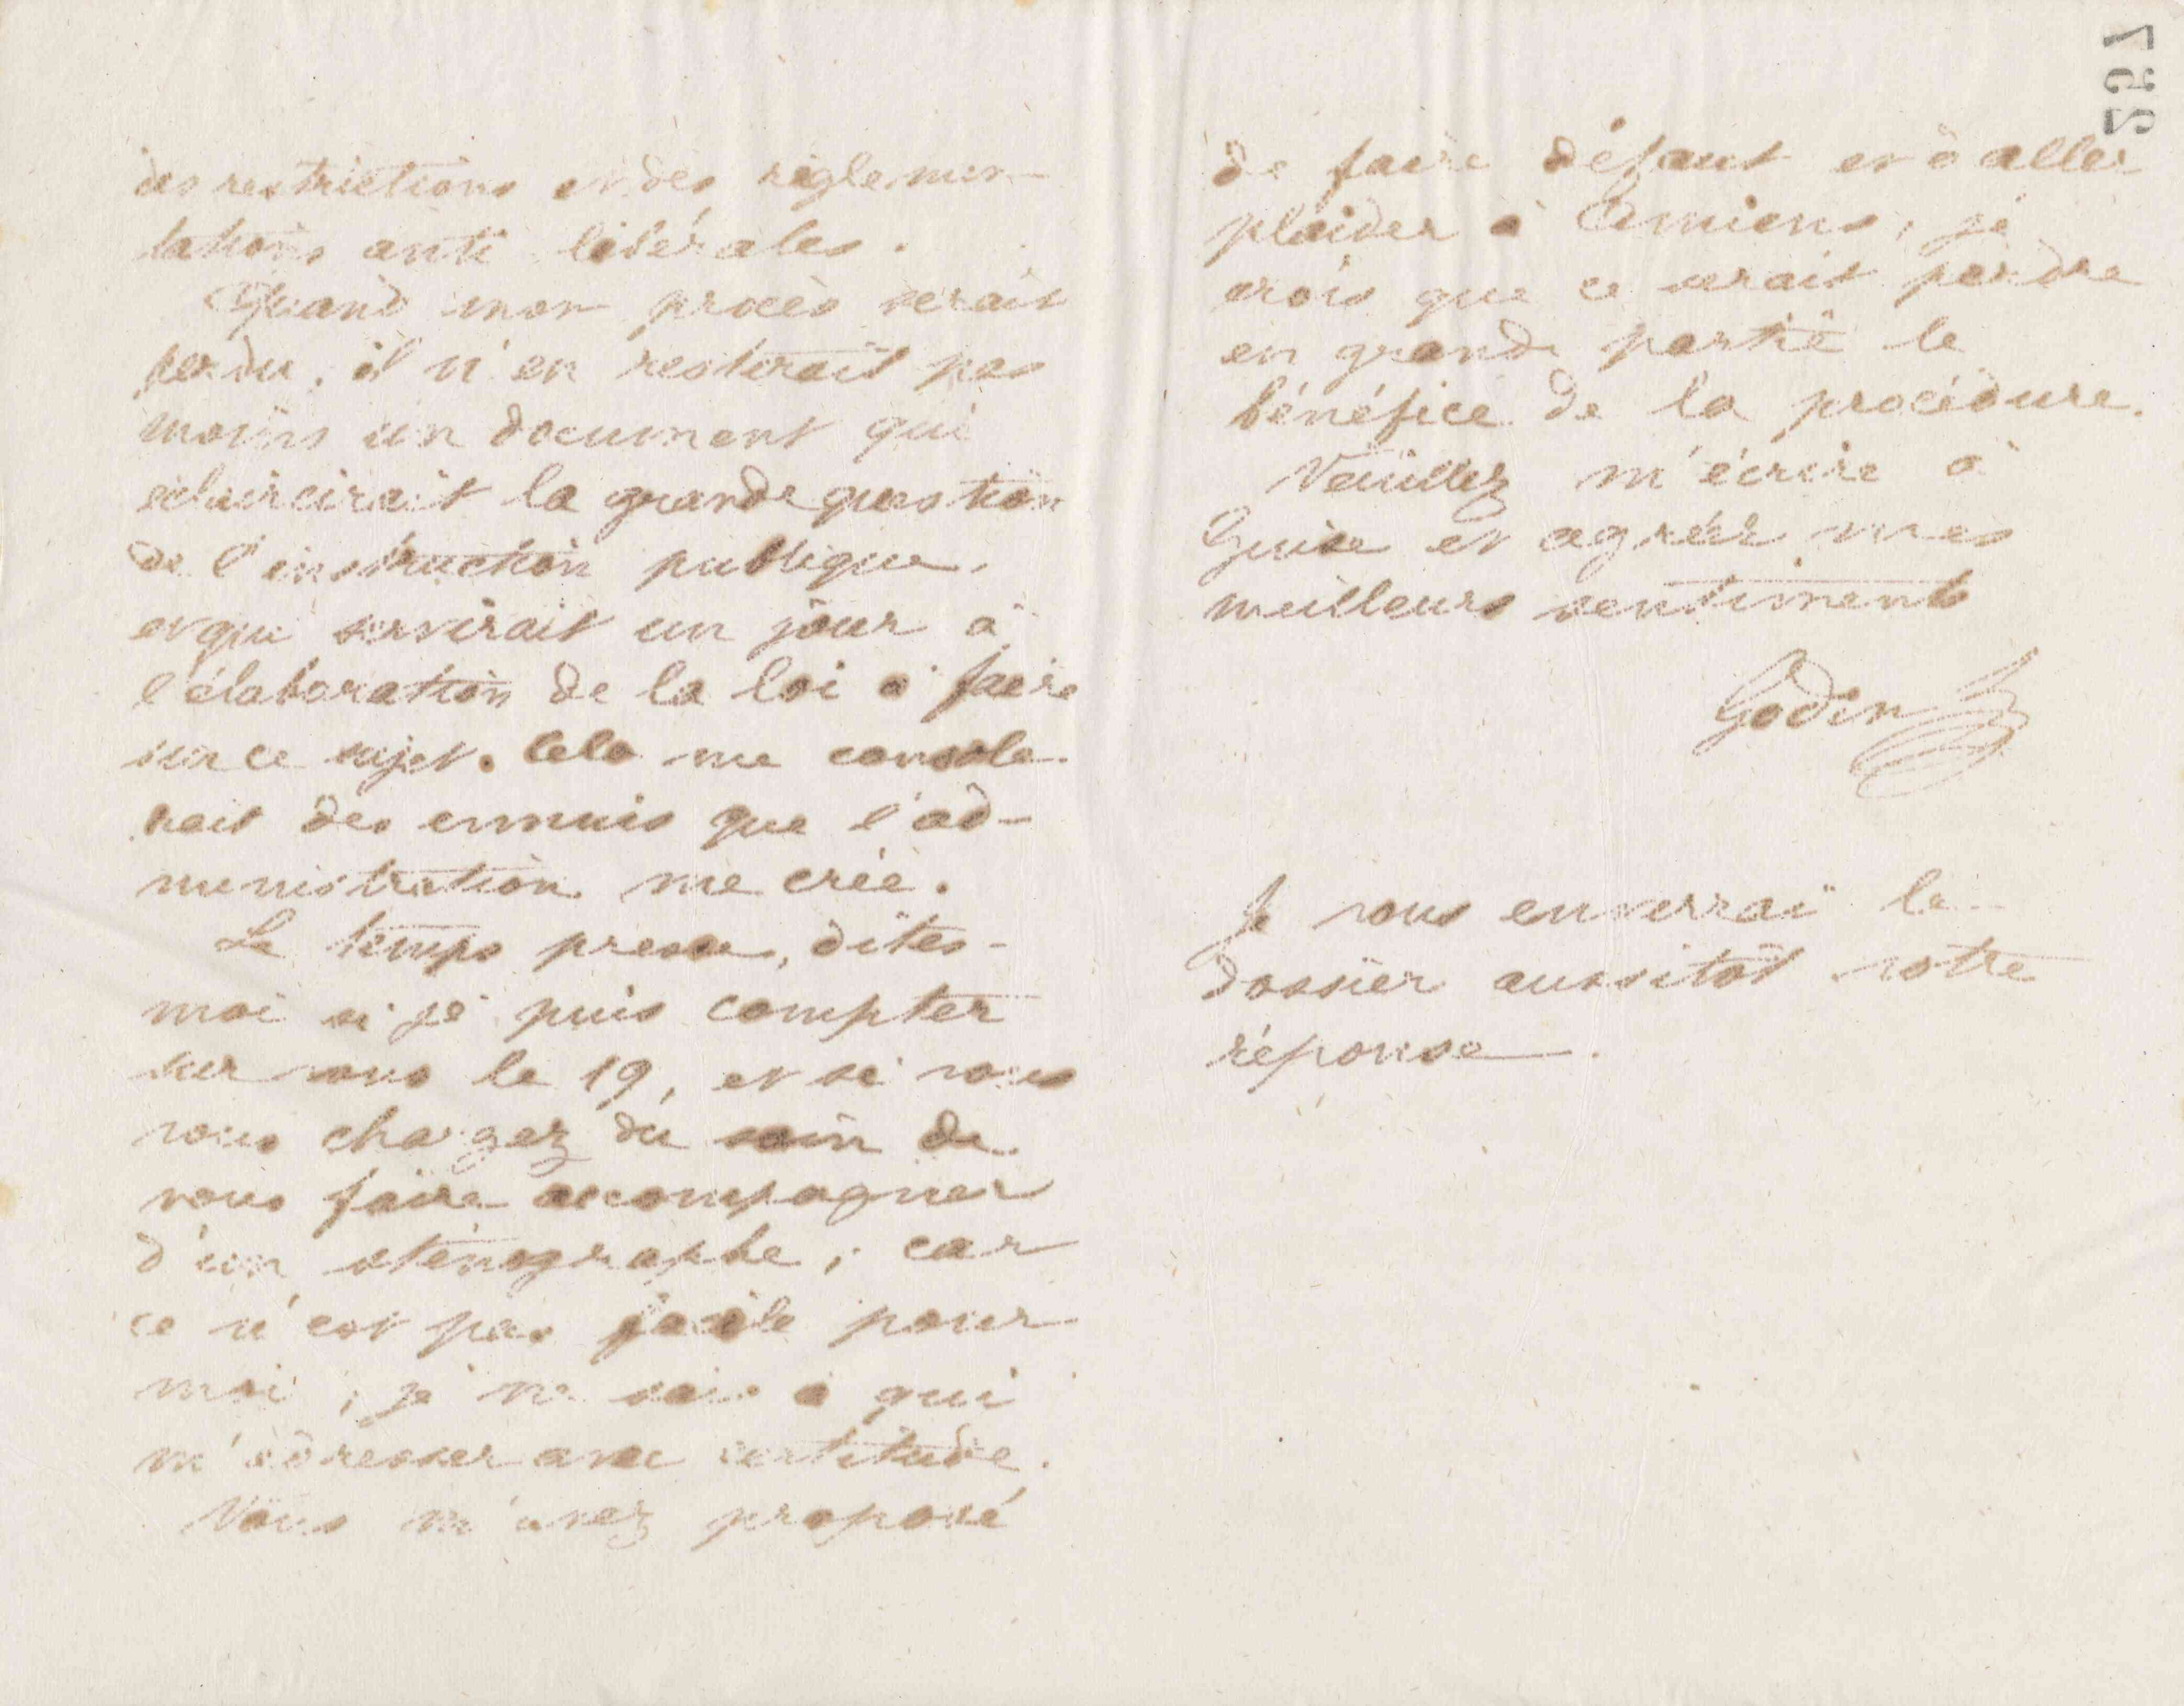 des restrictions et des réglemen-
tations anti libérales.
Quand mon procès serait
perdu, il n'en resterait pas
moins un document qui
éclaircirait la grande question
de l'instruction publique,
et qui servirait un jour à
l'élaboration de la loi à faire
sur ce sujet. Cela me console-
rait des ennuis que l'ad-
ministration me crée.
Le temps presse, dites-
moi si je puis compter
sur vous le 19, et si vous
vous chargez du soin de
vous faire accompagner
d'un sténographe; car
ce n'est pas facile pour
moi; je ne sais à qui
m'adresser avec certitude.
Vous m'avez proposé
de faire défaut et à aller
plaider à Amiens, je
crois que ce serait perdre
en grande partie le
bénéfice de la procédure.
Veuillez m'écrire à
Guise et agréer mes
meilleurs sentiments
Godin
Je vous enverrai le
dossier aussitôt votre
réponse.
257